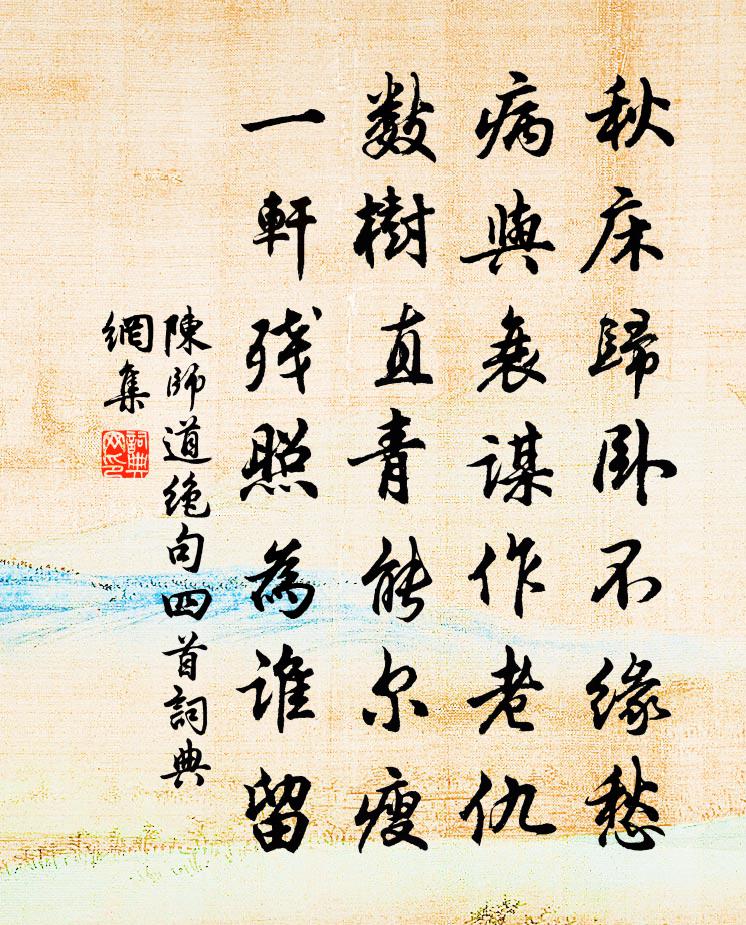 秋床歸卧不緣愁
病與衰謀作老仇
數樹直青能尔瘦
一軒殘照為誰留
陳師道絶句四首詞典
網集
詞典
网印